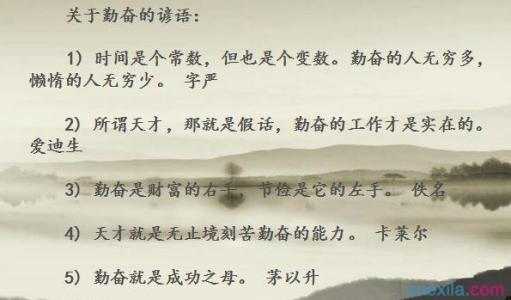 关于勤奋的谚语：
1）时间是个常数，但也是个变数。勤奋的人无穷多，
懒惰的人无穷少。 字严
2）所谓天才，那就是假话，勤奋的工作才是实在的。
爱迪生
3）勤奋是财富的右手，节俭是它的左手。 佚名
4）天才就是无止境刻苦勤奋的能力。 卡莱尔
5）勤奋就是成功之母。 茅以升
xuexila.com